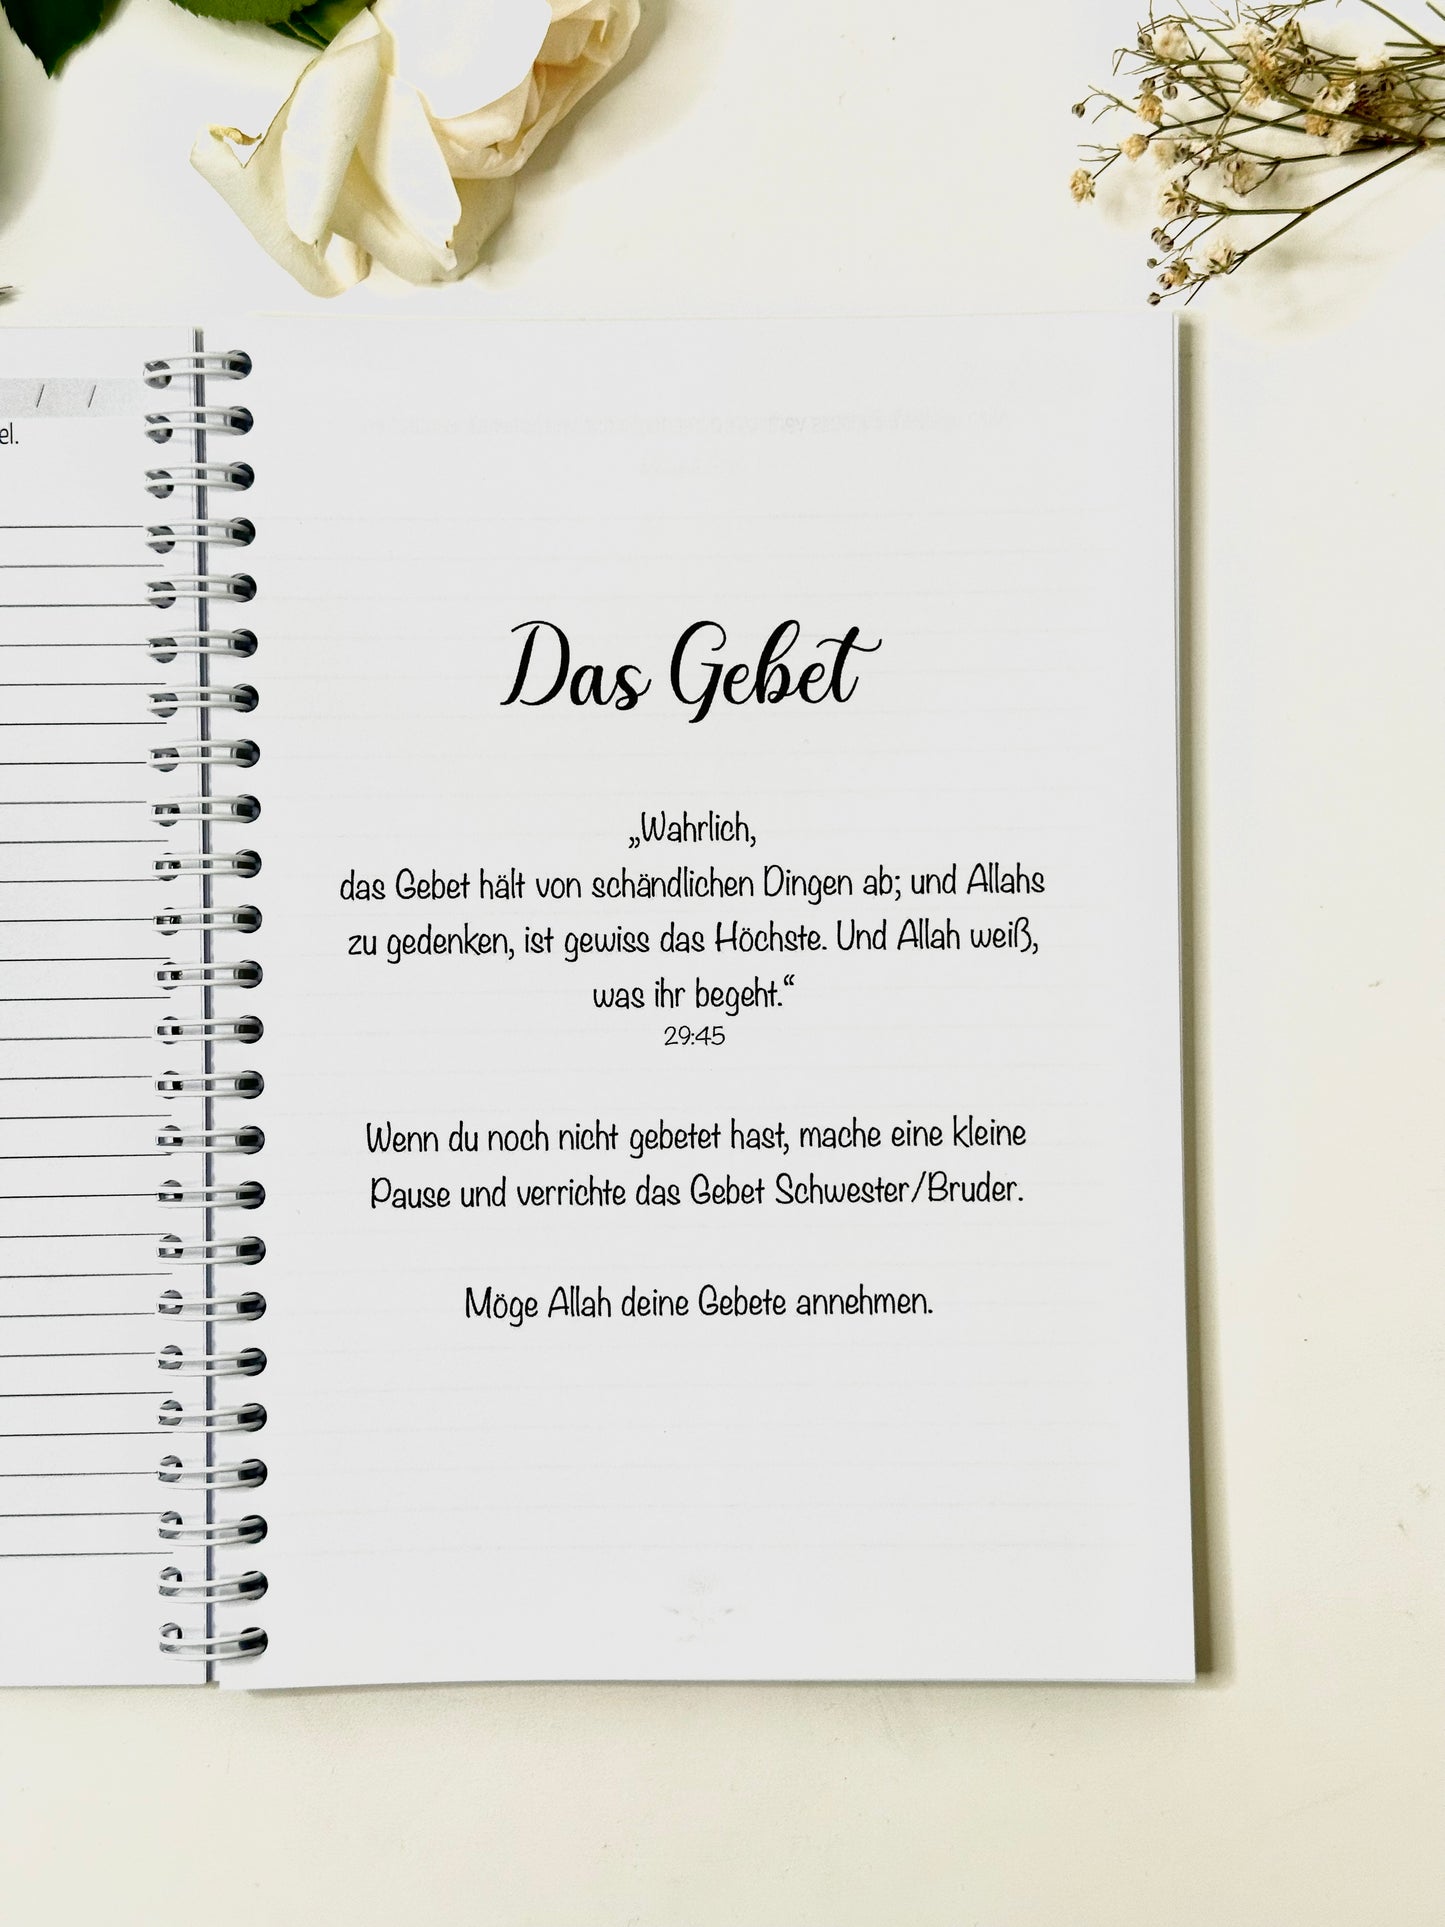 / /
el.
Das Gebet
„Wahrlich,
das Gebet hält von schändlichen Dingen ab; und Allahs
zu gedenken, ist gewiss das Höchste. Und Allah weiß,
was ihr begeht.“
29:45
Wenn du noch nicht gebetet hast, mache eine kleine
Pause und verrichte das Gebet Schwester/Bruder.
Möge Allah deine Gebete annehmen.